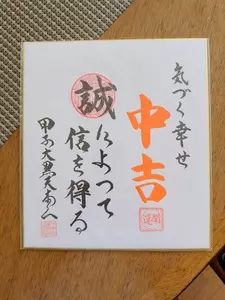 気づく幸せ
中吉
誠によって
信を得る
甲子大黒天本山